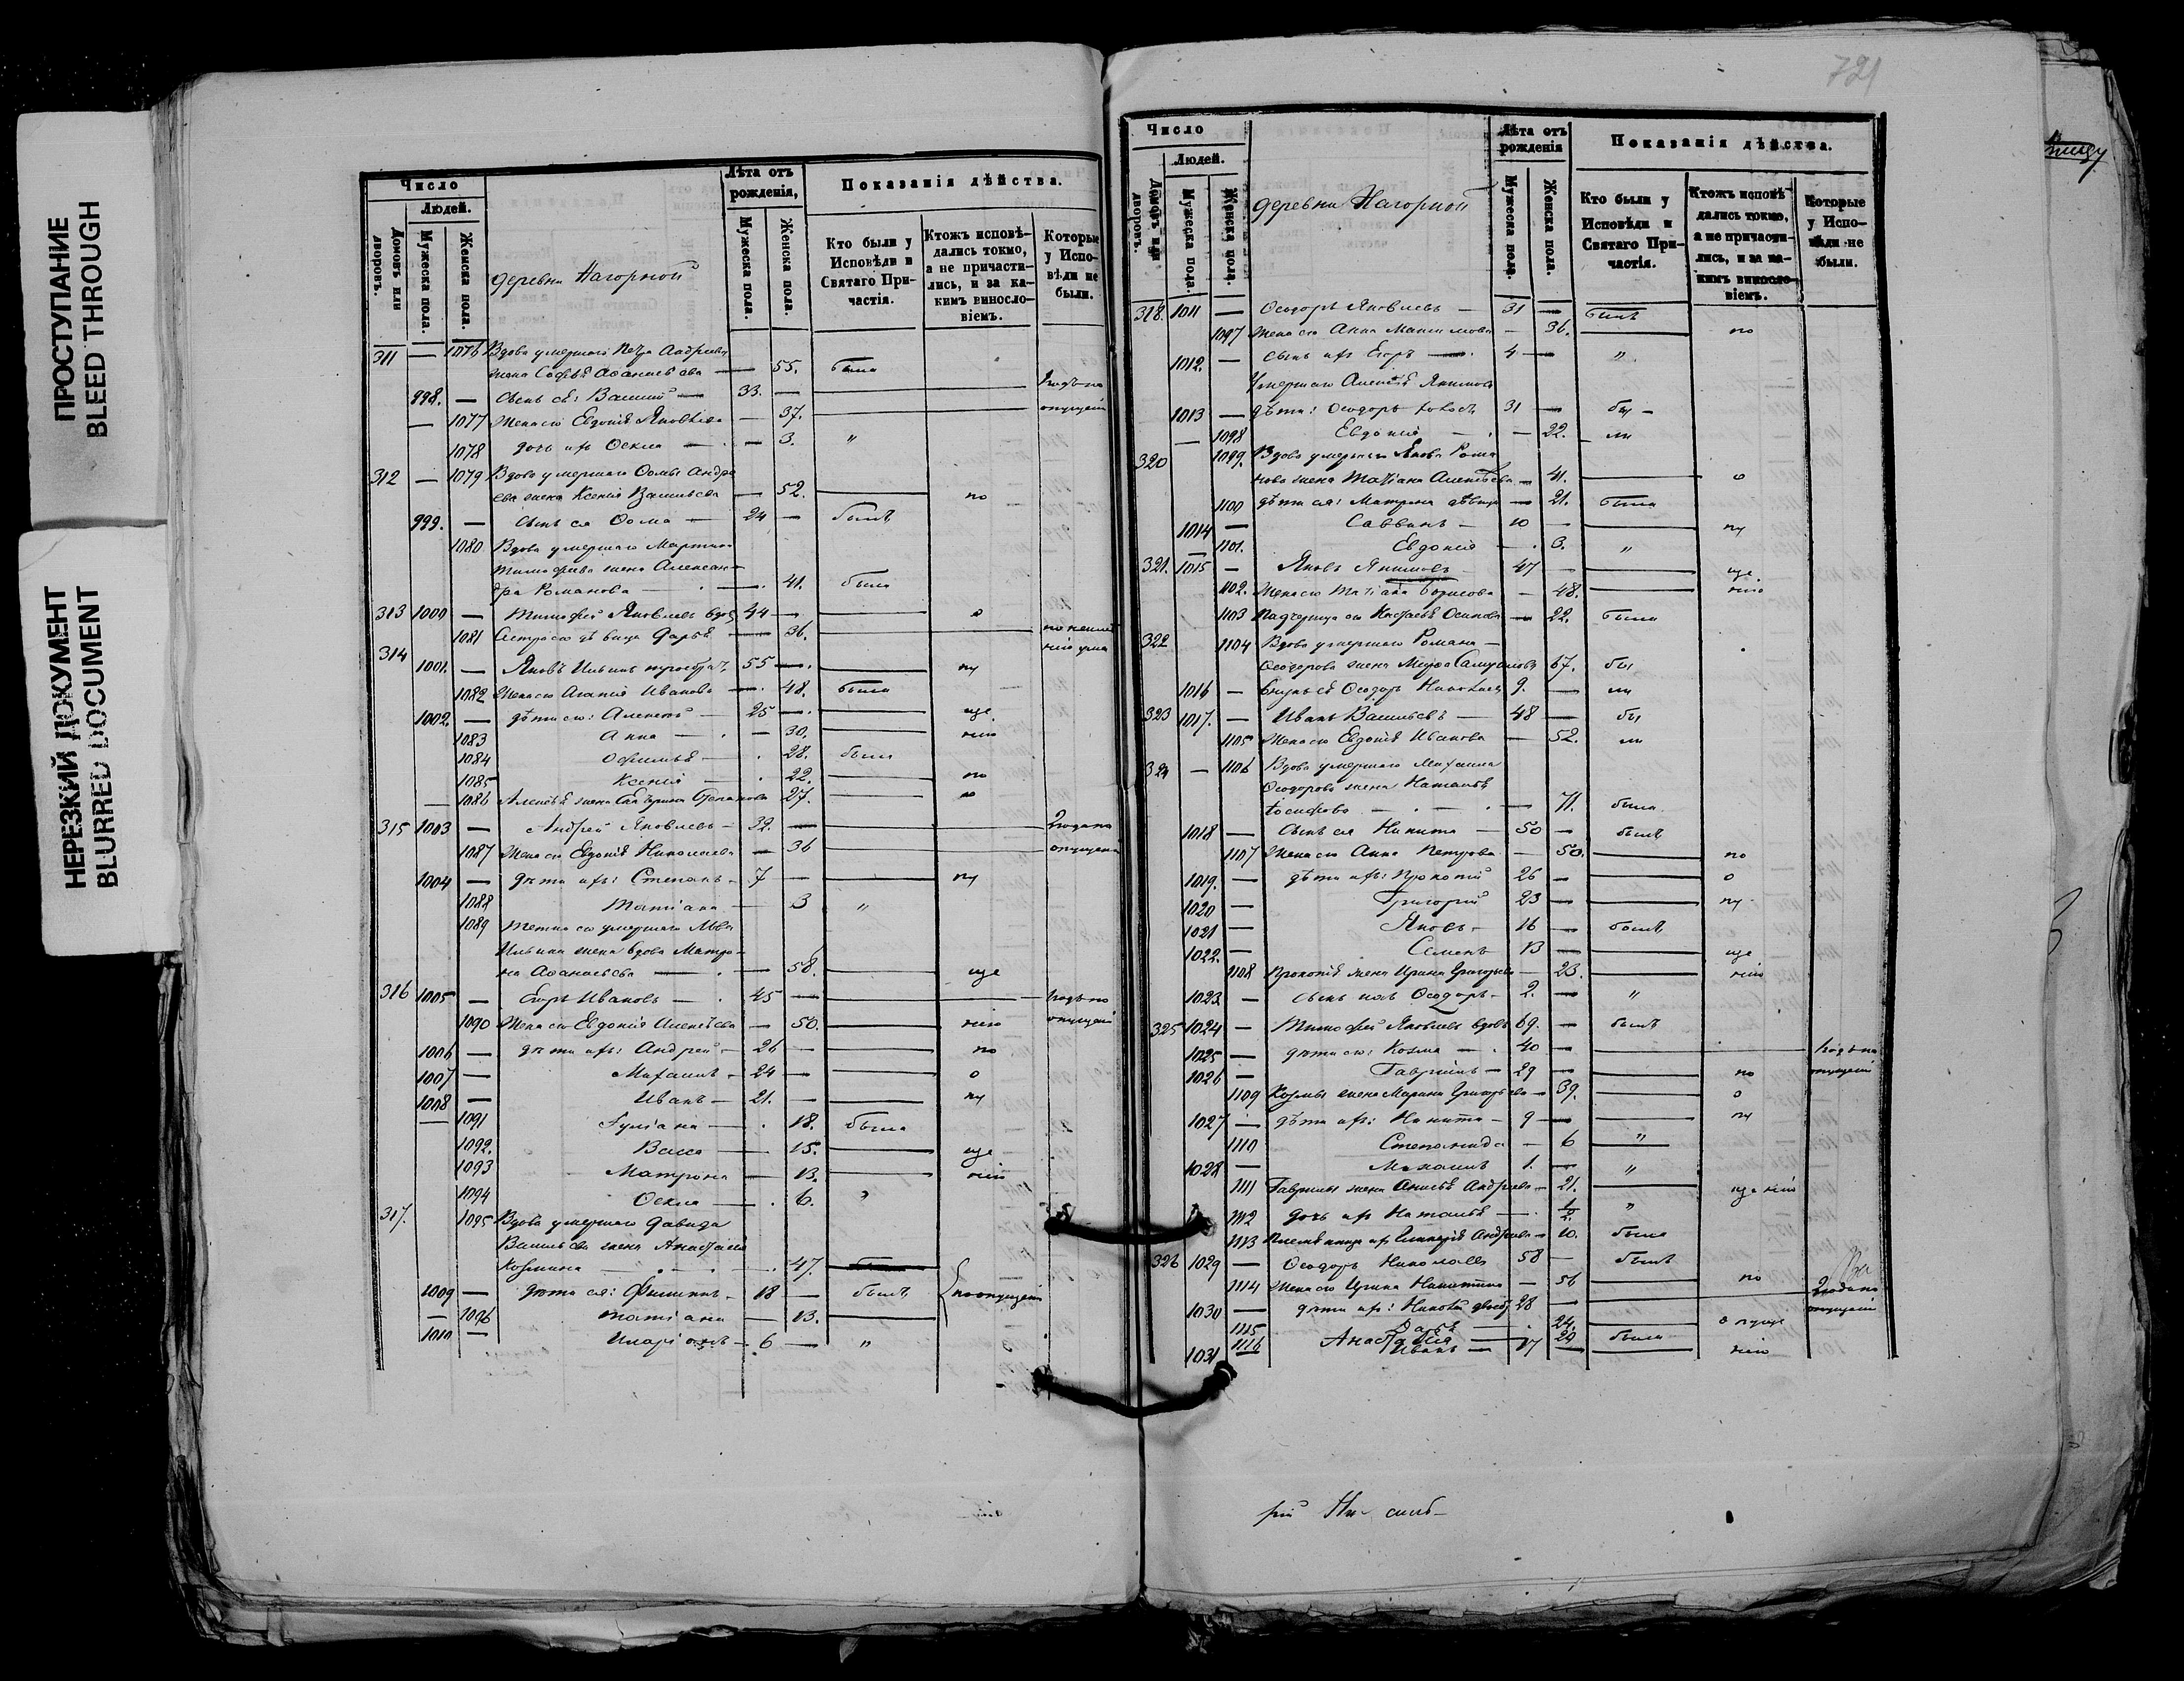 ПРОСТУПАНИЕ
BLEED THROUGH
НЕРЕЗКИЙ ДОКУМЕНТ
BLURRED DOCUMENT
Число
Людей.
Домовъ или дворовъ.
Мужеска пола.
Женска пола.
деревни Нагорной
Лѣта отъ рожденія,
Мужеска пола.
Женска пола.
Показанія дѣйства.
Кто были у Исповѣди и Святаго Причастія.
Ктожъ исповѣдались токмо, а не причастились, и за какимъ винословіемъ.
Которые у Исповѣди не были.
311 — 1076 Вдова умершаго Петра Андреева
жена Софья Аѳанасьева — 55. была
998. — сынъ ея: Василий — 33. —
— 1077 Жена его Евдокія Яковлева — 37.
1078 дочь ихъ Ѳекла — 3. "
312 — 1079 Вдова умершаго Ѳомы Андре
ева жена Ксенія Васильева — 52. по
999. — сынъ ея Ѳома — 24 — былъ
1080 Вдова умершаго Мартина
Тимофеева жена Александра
Романова — 41. была
313 1000 — Тимофей Яковлевъ вдов 44 — о
1081 Сестра его дѣвица Дарья — 36.
314 1001. — Яковъ Ильинъ 55 — пу
1082 Жена его Агапія Иванова — 48. была
1002. — дѣти его: Алексей — 25 — ще
1083 Анна — 30. нію
1084 Офимья — 28. была
1085 Ксенія — 22. по
— 1086 Алексѣя жена Екатерина Степанова 27. о
315 1003 — Андрей Яковлевъ — 32. — 2 года по
1087 Жена его Евдокія Николаева — 36 опущенію
1004 — дѣти ихъ: Степанъ — 7 — пу
1088 Татіана — 3 "
1089 Тетка его умершаго Льва
Ильина жена вдова Матро
на Аѳанасьева — 58. ще
316 1005 — Егоръ Ивановъ — 45 — годъ по
1090 Жена его Евдокія Алексѣева — 50. нію опущені
1006 — дѣти ихъ: Андрей — 26 — по
1007 — Михаилъ — 24 — о
1008 — Иванъ — 21. — пу
1091 Іуліана — 18. была
1092. Васса — 15. ще
1093 Матрона — 13. нію
1094 Ѳекла — 6. "
317. 1095 Вдова умершаго Давида
Васильева жена Анастасія
Козмина — 47.
1009 — дѣти ея: Филиппъ — 18 — былъ по опущенію
— 1096 Татіана — 13.
1010 — Иларіонъ — 6 — "
721
Число
Людей.
Домовъ или дворовъ.
Мужеска пола.
Женска пола.
деревни Нагорной
Лѣта отъ рожденія
Мужеска пола.
Женска пола.
Показанія дѣйства.
Кто были у Исповѣди и Святаго Причастія.
Ктожъ исповѣдались токмо, а не причастились, и за какимъ винословіемъ.
Которые у Исповѣди не были.
318. 1011 — Ѳеодоръ Яковлевъ — 31 — былъ
1097 Жена его Анна Максимова — 36. по
1012. — сынъ ихъ Егоръ — 4 — "
Умершаго Алексѣя Якимова
1013 — дѣти: Ѳеодоръ холостъ 31 — бы
— 1098 Евдокія — 22. ли
320 1099. Вдова умершаго Якова Рома
нова жена Татіана Алексѣева — 41. о
1100 дѣти ея: Матрона дѣвица — 21. была
1014 — Савванъ — 10 — пу
— 1101. Евдокія — 3. "
321. 1015 — Яковъ Якимовъ 47 — ще
1102. Жена его Татіана Борисова — 48. нію
1103 Падчерица его Осипова — 22. была
322 1104 Вдова умершаго Романа
Ѳеодорова жена Самуилова 67. бы
1016 — Внукъ ея Ѳеодоръ 9. — ли
323 1017. — Иванъ Васильевъ — 48 — бы
1105 Жена его Евдокія Иванова — 52. ли
324 — 1106 Вдова умершаго Михаила
Ѳеодорова жена Наталья
Іосифова — 71. была
1018 — сынъ ея Никита — 50 — былъ
1107 Жена его Анна Петрова — 50. по
1019. — дѣти ихъ: Прокопій 26 — о
1020 — Григорій 23 — пу
1021 — Яковъ — 16 — былъ
1022. — Семенъ 13 — ще
1108 Прокопія жена Ирина Григорьева — 23. нію
1023 — сынъ ихъ Ѳеодоръ — 2. — "
325 1024 — Тимофей Яковлевъ вдовъ 69. — былъ
1025 — дѣти его: Козма — 40 — годъ по
1026 — Гавріилъ — 29 — по опущені
1109 Козмы жена Марина Григорьева — 39. о
1027 — дѣти ихъ: Никита — 9 — пу
1110 Степанида — 6 "
1028 — Михаилъ 1. — "
1111 Гавриилы жена Андреева — 21. ще нію
1112 дочь ихъ Наталья — 1/2. "
1113 Племянница ихъ Андреева — 10. была
326 1029 — Ѳеодоръ Николаевъ 58 — былъ
1114 Жена его Ирина Никитина — 56 по 2 года по
1030 — дѣти ихъ: 28 — опущеніи
1115 Дарья — 24. о пуще
1116 Анастасія — 20 была
1031 Иванъ — 17 — нію